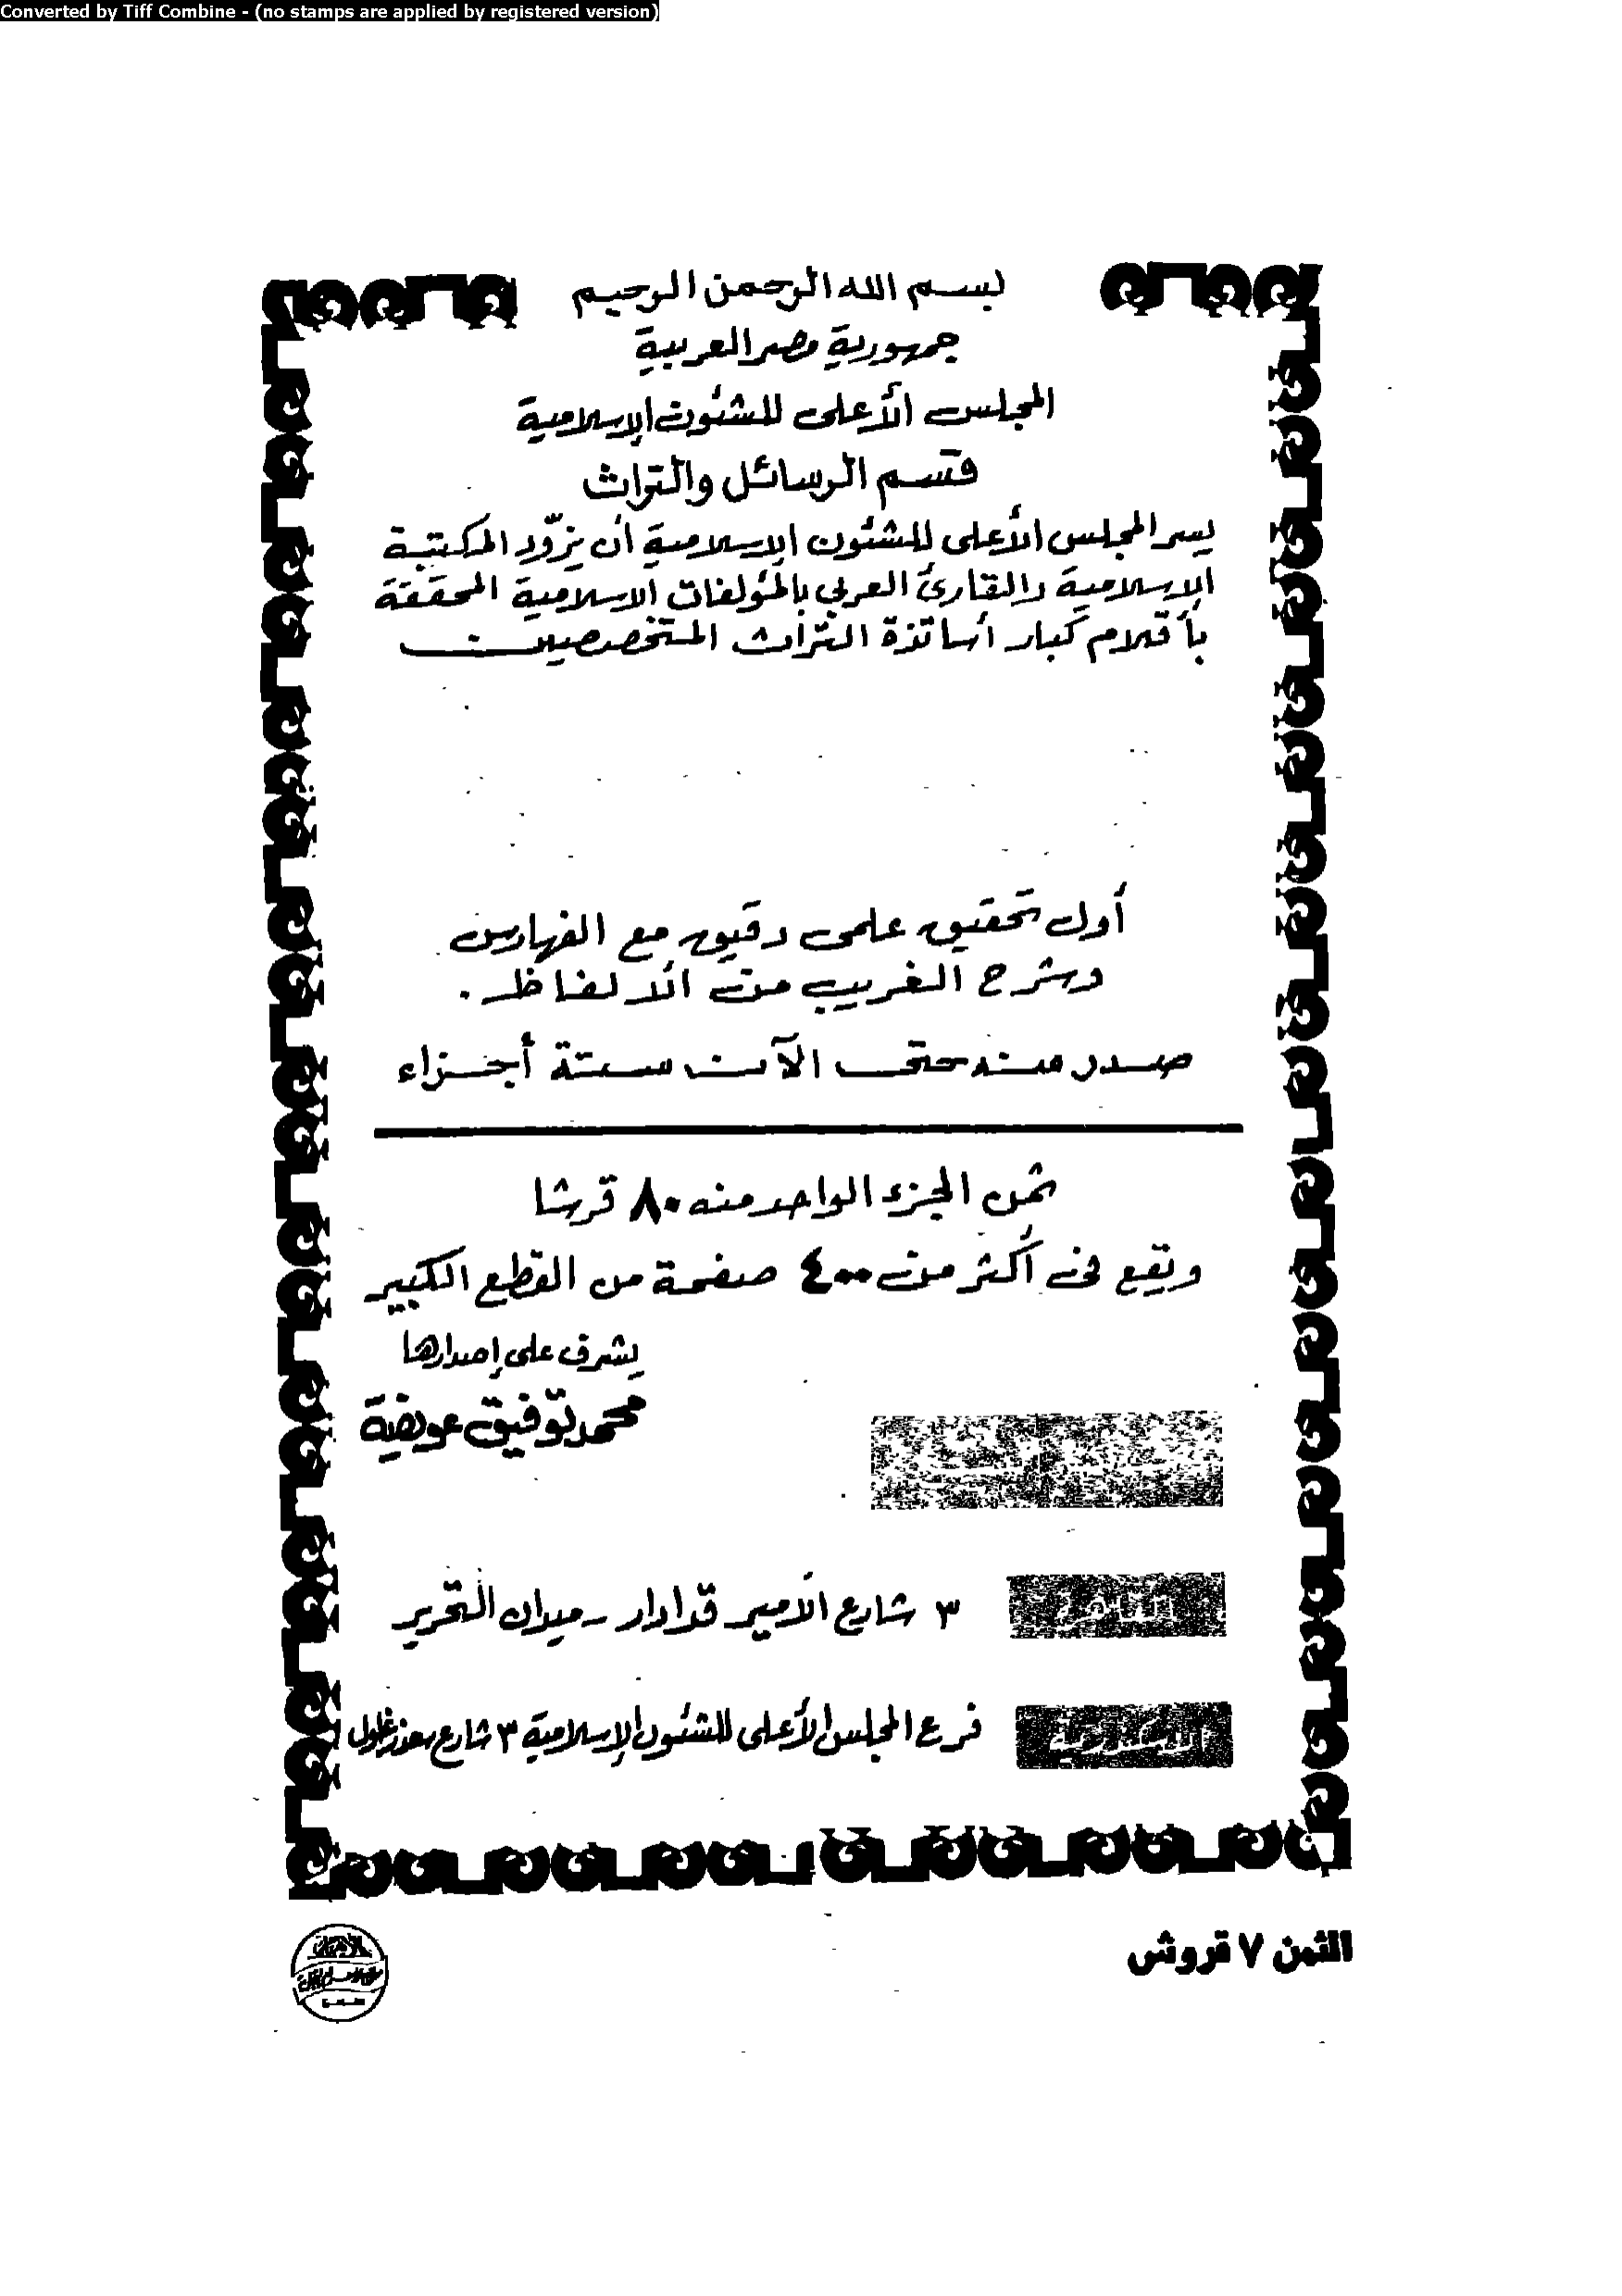 Converted by Tiff Combine - (no stamps are applied by registered version)
بسم الله الرحمن الرحيم
جمهورية مصر العربية
المجلس الأعلى للشئون الإسلامية
قسم الرسائل والتراث
يسر المجلس الأعلى للشئون الإسلامية أن يزوّد المكتبة
الإسلامية والقارئ العربي بالمؤلفات الاسلامية المحققة
بأقلام كبار أساتذة التراث المتخصصين
أول تحقيق علمى دقيق مع الفهارس
وشرح الغريب من الألفاظ .
صدر منه حتى الآن ستة أجزاء
ثمن الجزء الواحد منه ٨٠ قرشا
وتقع فى أكثر من ٤٠٠ صفحة من القطع الكبير
يشرف على إصدارها
محمد توفيق عويضة
القاهرة ٣ شارع الأمير قدادار - ميدان التحرير
الإسكندرية فرع المجلس الأعلى للشئون الإسلامية ٣ شارع سعد زغلول
الثمن ٧ قروش